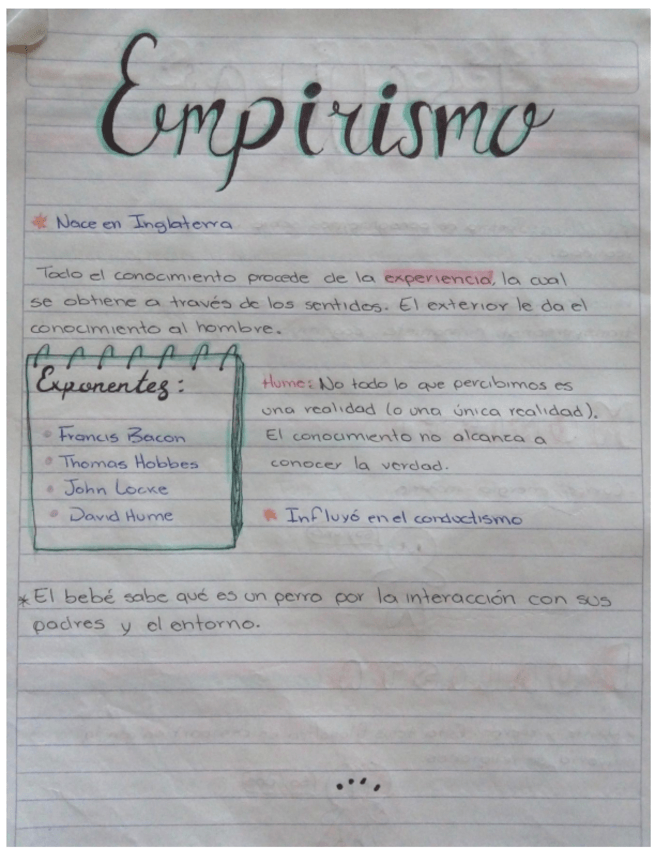 Empirismo
* Nace en Inglaterra
Todo el conocimiento procede de la experiencia, la cual
se obtiene a través de los sentidos. El exterior le da el
conocimiento al hombre.
Exponentes:
• Francis Bacon
• Thomas Hobbes
• John Locke
• David Hume
Hume: No todo lo que percibimos es
una realidad (o una única realidad).
El conocimiento no alcanza a
conocer la verdad.
* Influyó en el conductismo
* El bebé sabe qué es un perro por la interacción con sus
padres y el entorno.